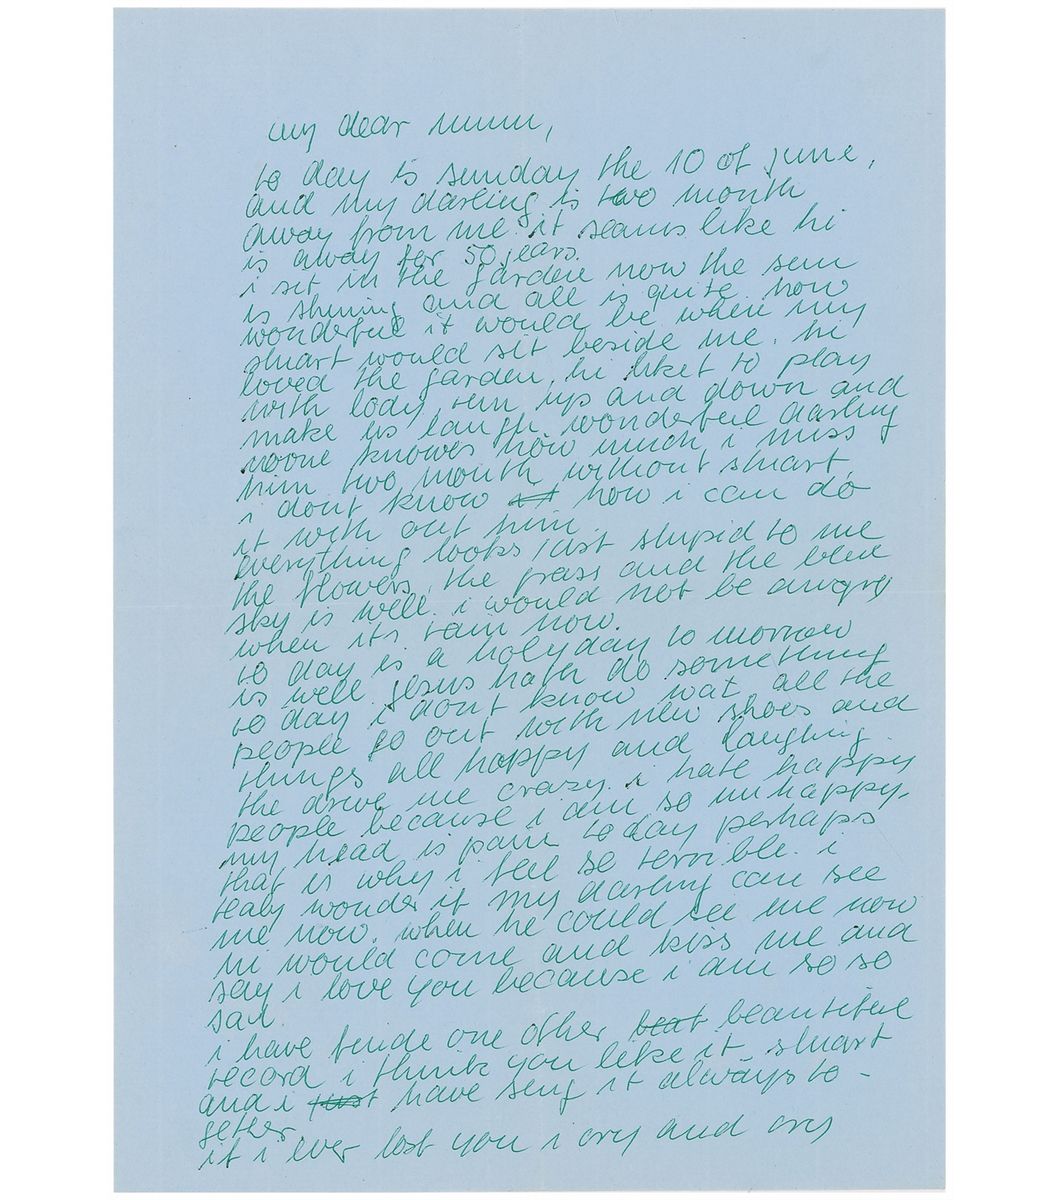 my dear mum,
to day is sunday the 10 of june,
and my darling is two month
away from me. it seams like hi
is away for 50 years.
i sit in the garden now the sun
is shining and all is quite. how
wonderful it would be when my
stuart would sit beside me. hi
loved the garden, hi liket to play
with lody, run up and down and
make us laugh wonderful darling
noone knows how much i miss
him two month without stuart,
i dont know how i can do
it with out him.
everything looks just stupid to me
the flowers, the grass and the blue
sky is well. i would not be angry
when its rain now.
to day is a holyday to morrow
is well. jesus hath do something
to day i dont know wat, all the
people go out with new shoes and
things all happy and laughing.
the drive me crazy. i hate happy
people because i am so unhappy.
my head is pain to day perhaps
that is why i feel so terrible. i
realy wonder if my darling can see
me now. when he could see me now
hi would come and kiss me and
say i love you because i am so so
sad.
i have finde one other beat beautiful
record i think you like it. stuart
and i just have sing it always to-
gether.
if i ever lost you i cry and cry